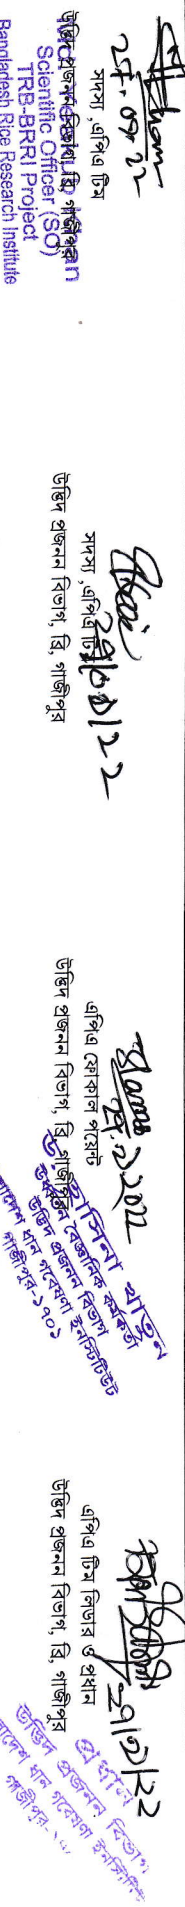 ২৭.০৯.২২
সদস্য, এপিএ টিম
উদ্ভিদ প্রজনন বিভাগ, ব্রি, গাজীপুর
Scientific Officer (SO)
TRB-BRRI Project
Bangladesh Rice Research Institute
২৭/০৯/২২
সদস্য, এপিএ টিম
উদ্ভিদ প্রজনন বিভাগ, ব্রি, গাজীপুর
২৭.৯.২০২২
এপিএ ফোকাল পয়েন্ট
উদ্ভিদ প্রজনন বিভাগ, ব্রি, গাজীপুর
ড. হাসিনা খাতুন
ঊর্ধ্বতন বৈজ্ঞানিক কর্মকর্তা
উদ্ভিদ প্রজনন বিভাগ
বাংলাদেশ ধান গবেষণা ইনস্টিটিউট
গাজীপুর-১৭০১
২৭/৯/২২
এপিএ টিম লিডার ও প্রধান
উদ্ভিদ প্রজনন বিভাগ, ব্রি, গাজীপুর
প্রধান
উদ্ভিদ প্রজনন বিভাগ
ধান গবেষণা ইনস্টিটিউট
গাজীপুর-